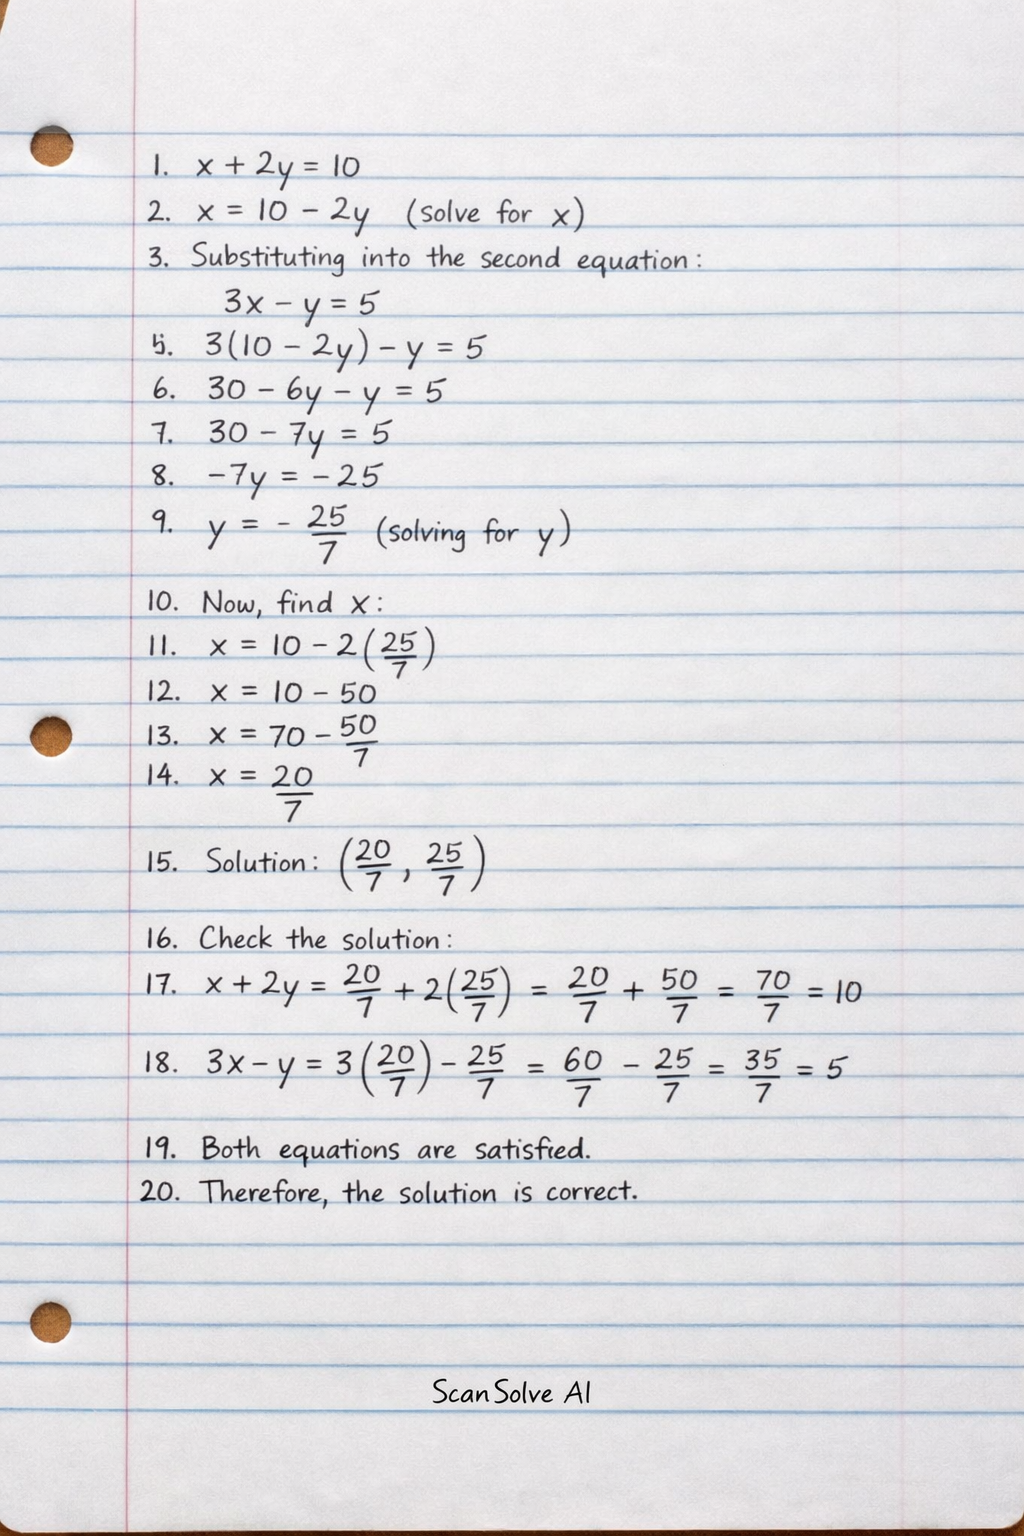 1. x + 2y = 10
2. x = 10 - 2y (solve for x)
3. Substituting into the second equation:
3x - y = 5
5. 3(10 - 2y) - y = 5
6. 30 - 6y - y = 5
7. 30 - 7y = 5
8. -7y = -25
9. y = - 25/7 (solving for y)
10. Now, find x:
11. x = 10 - 2(25/7)
12. x = 10 - 50
13. x = 70 - 50/7
14. x = 20/7
15. Solution: (20/7, 25/7)
16. Check the solution:
17. x + 2y = 20/7 + 2(25/7) = 20/7 + 50/7 = 70/7 = 10
18. 3x - y = 3(20/7) - 25/7 = 60/7 - 25/7 = 35/7 = 5
19. Both equations are satisfied.
20. Therefore, the solution is correct.
ScanSolve AI